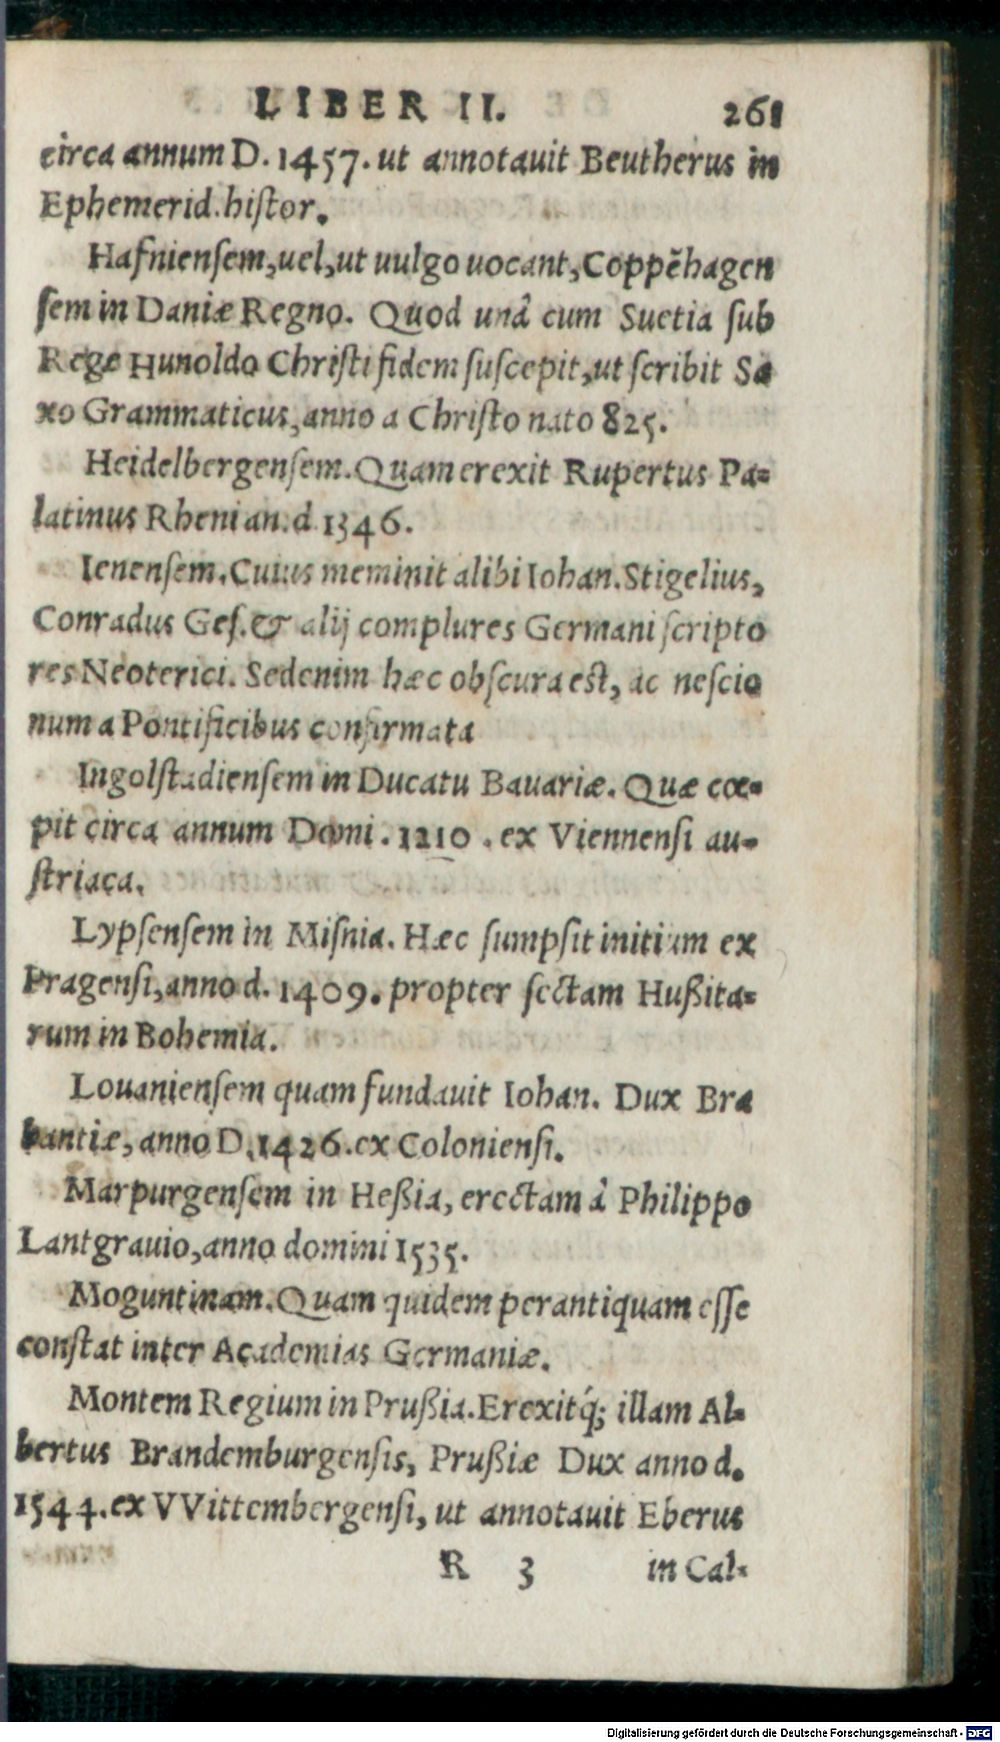 LIBER II. 261
circa annum D. 1457. ut annotauit Beutherus in
Ephemerid. histor.
Hafniensem, uel, ut uulgo uocant, Coppẽhagen
sem in Daniæ Regno. Quod unâ cum Suetia sub
Rege Hunoldo Christi fidem suscepit, ut scribit Sa
xo Grammaticus, anno a Christo nato 825.
Heidelbergensem. Quam erexit Rupertus Pa-
latinus Rheni an. d 1346.
Ienensem. Cuius meminit alibi Iohan. Stigelius,
Conradus Ges. & alij complures Germani scripto
res Neoterici. Sed enim hæc obscura est, ac nescio
num a Pontificibus confirmata
Ingolstadiensem in Ducatu Bauariæ. Quæ cœ-
pit circa annum Domi. 1210. ex Viennensi au-
striaca.
Lypsensem in Misnia. Hæc sumpsit initium ex
Pragensi, anno d. 1409. propter sectam Hußita-
rum in Bohemia.
Louaniensem quam fundauit Iohan. Dux Bra
bantiæ, anno D. 1426. ex Coloniensi.
Marpurgensem in Heßia, erectam â Philippo
Lantgrauio, anno domini 1535.
Moguntinam. Quam quidem perantiquam esse
constat inter Academias Germaniæ.
Montem Regium in Prußia. Erexitq́; illam Al-
bertus Brandemburgensis, Prußiæ Dux anno d.
1544. ex VVittembergensi, ut annotauit Eberus
R 3 in Cal-
Digitalisierung gefördert durch die Deutsche Forschungsgemeinschaft - DFG